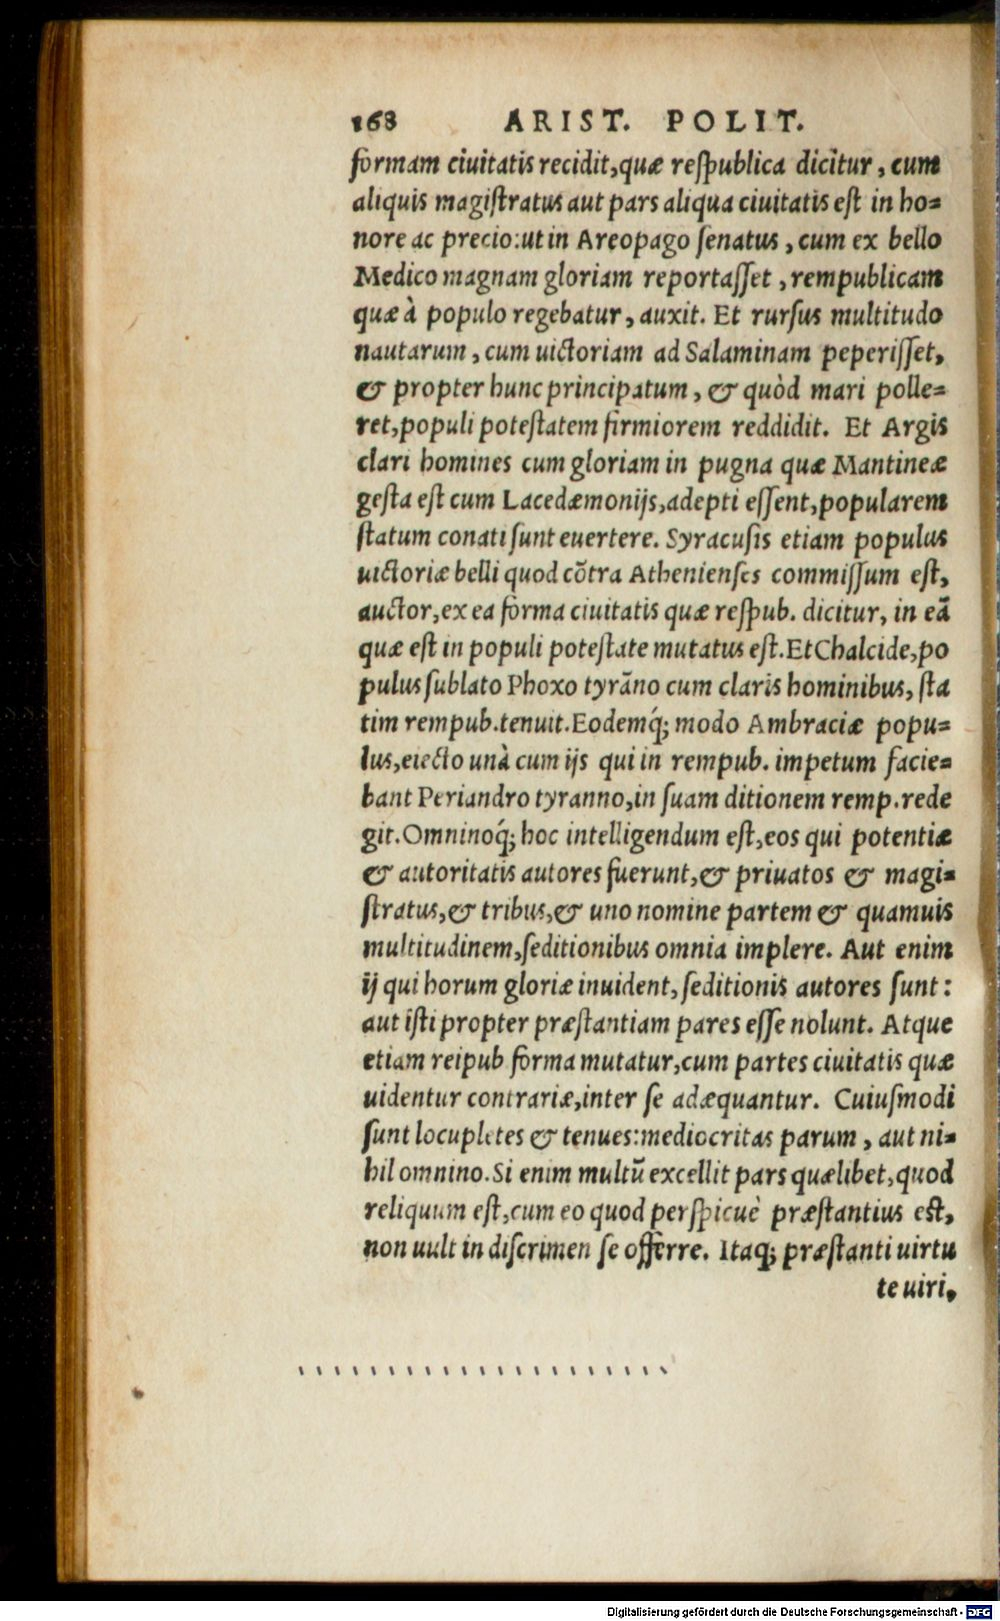 168 ARIST. POLIT.
formam ciuitatis recidit,quæ reſpublica dicitur, cum
aliquis magiſtratus aut pars aliqua ciuitatis eſt in ho=
nore ac precio:ut in Areopago ſenatus, cum ex bello
Medico magnam gloriam reportaſſet, rempublicam
quæ à populo regebatur, auxit. Et rurſus multitudo
nautarum, cum uictoriam ad Salaminam peperiſſet,
& propter hunc principatum, & quòd mari polle=
ret,populi poteſtatem firmiorem reddidit. Et Argis
clari homines cum gloriam in pugna quæ Mantineæ
geſta eſt cum Lacedæmonijs,adepti eſſent,popularem
ſtatum conati ſunt euertere. Syracuſis etiam populus
uictoriæ belli quod cõtra Athenienſes commiſſum eſt,
auctor,ex ea forma ciuitatis quæ reſpub. dicitur, in eã
quæ eſt in populi poteſtate mutatus eſt.Et Chalcide,po
pulus ſublato Phoxo tyrãno cum claris hominibus, ſta
tim rempub.tenuit.Eodemq́; modo Ambraciæ popu=
lus,eiecto unà cum ijs qui in rempub. impetum facie=
bant Periandro tyranno,in ſuam ditionem remp.rede
git.Omninoq́; hoc intelligendum eſt,eos qui potentiæ
& autoritatis autores fuerunt,& priuatos & magi=
ſtratus,& tribus,& uno nomine partem & quamuis
multitudinem,ſeditionibus omnia implere. Aut enim
ij qui horum gloriæ inuident, ſeditionis autores ſunt:
aut iſti propter præſtantiam pares eſſe nolunt. Atque
etiam reipub forma mutatur,cum partes ciuitatis quæ
uidentur contrariæ,inter ſe adæquantur. Cuiuſmodi
ſunt locupletes & tenues:mediocritas parum, aut ni=
hil omnino.Si enim multũ excellit pars quælibet,quod
reliquum eſt,cum eo quod perſpicuè præſtantius eſt,
non uult in diſcrimen ſe offerre. Itaq; præſtanti uirtu
te uiri,
Digitalisierung gefördert durch die Deutsche Forschungsgemeinschaft - DFG